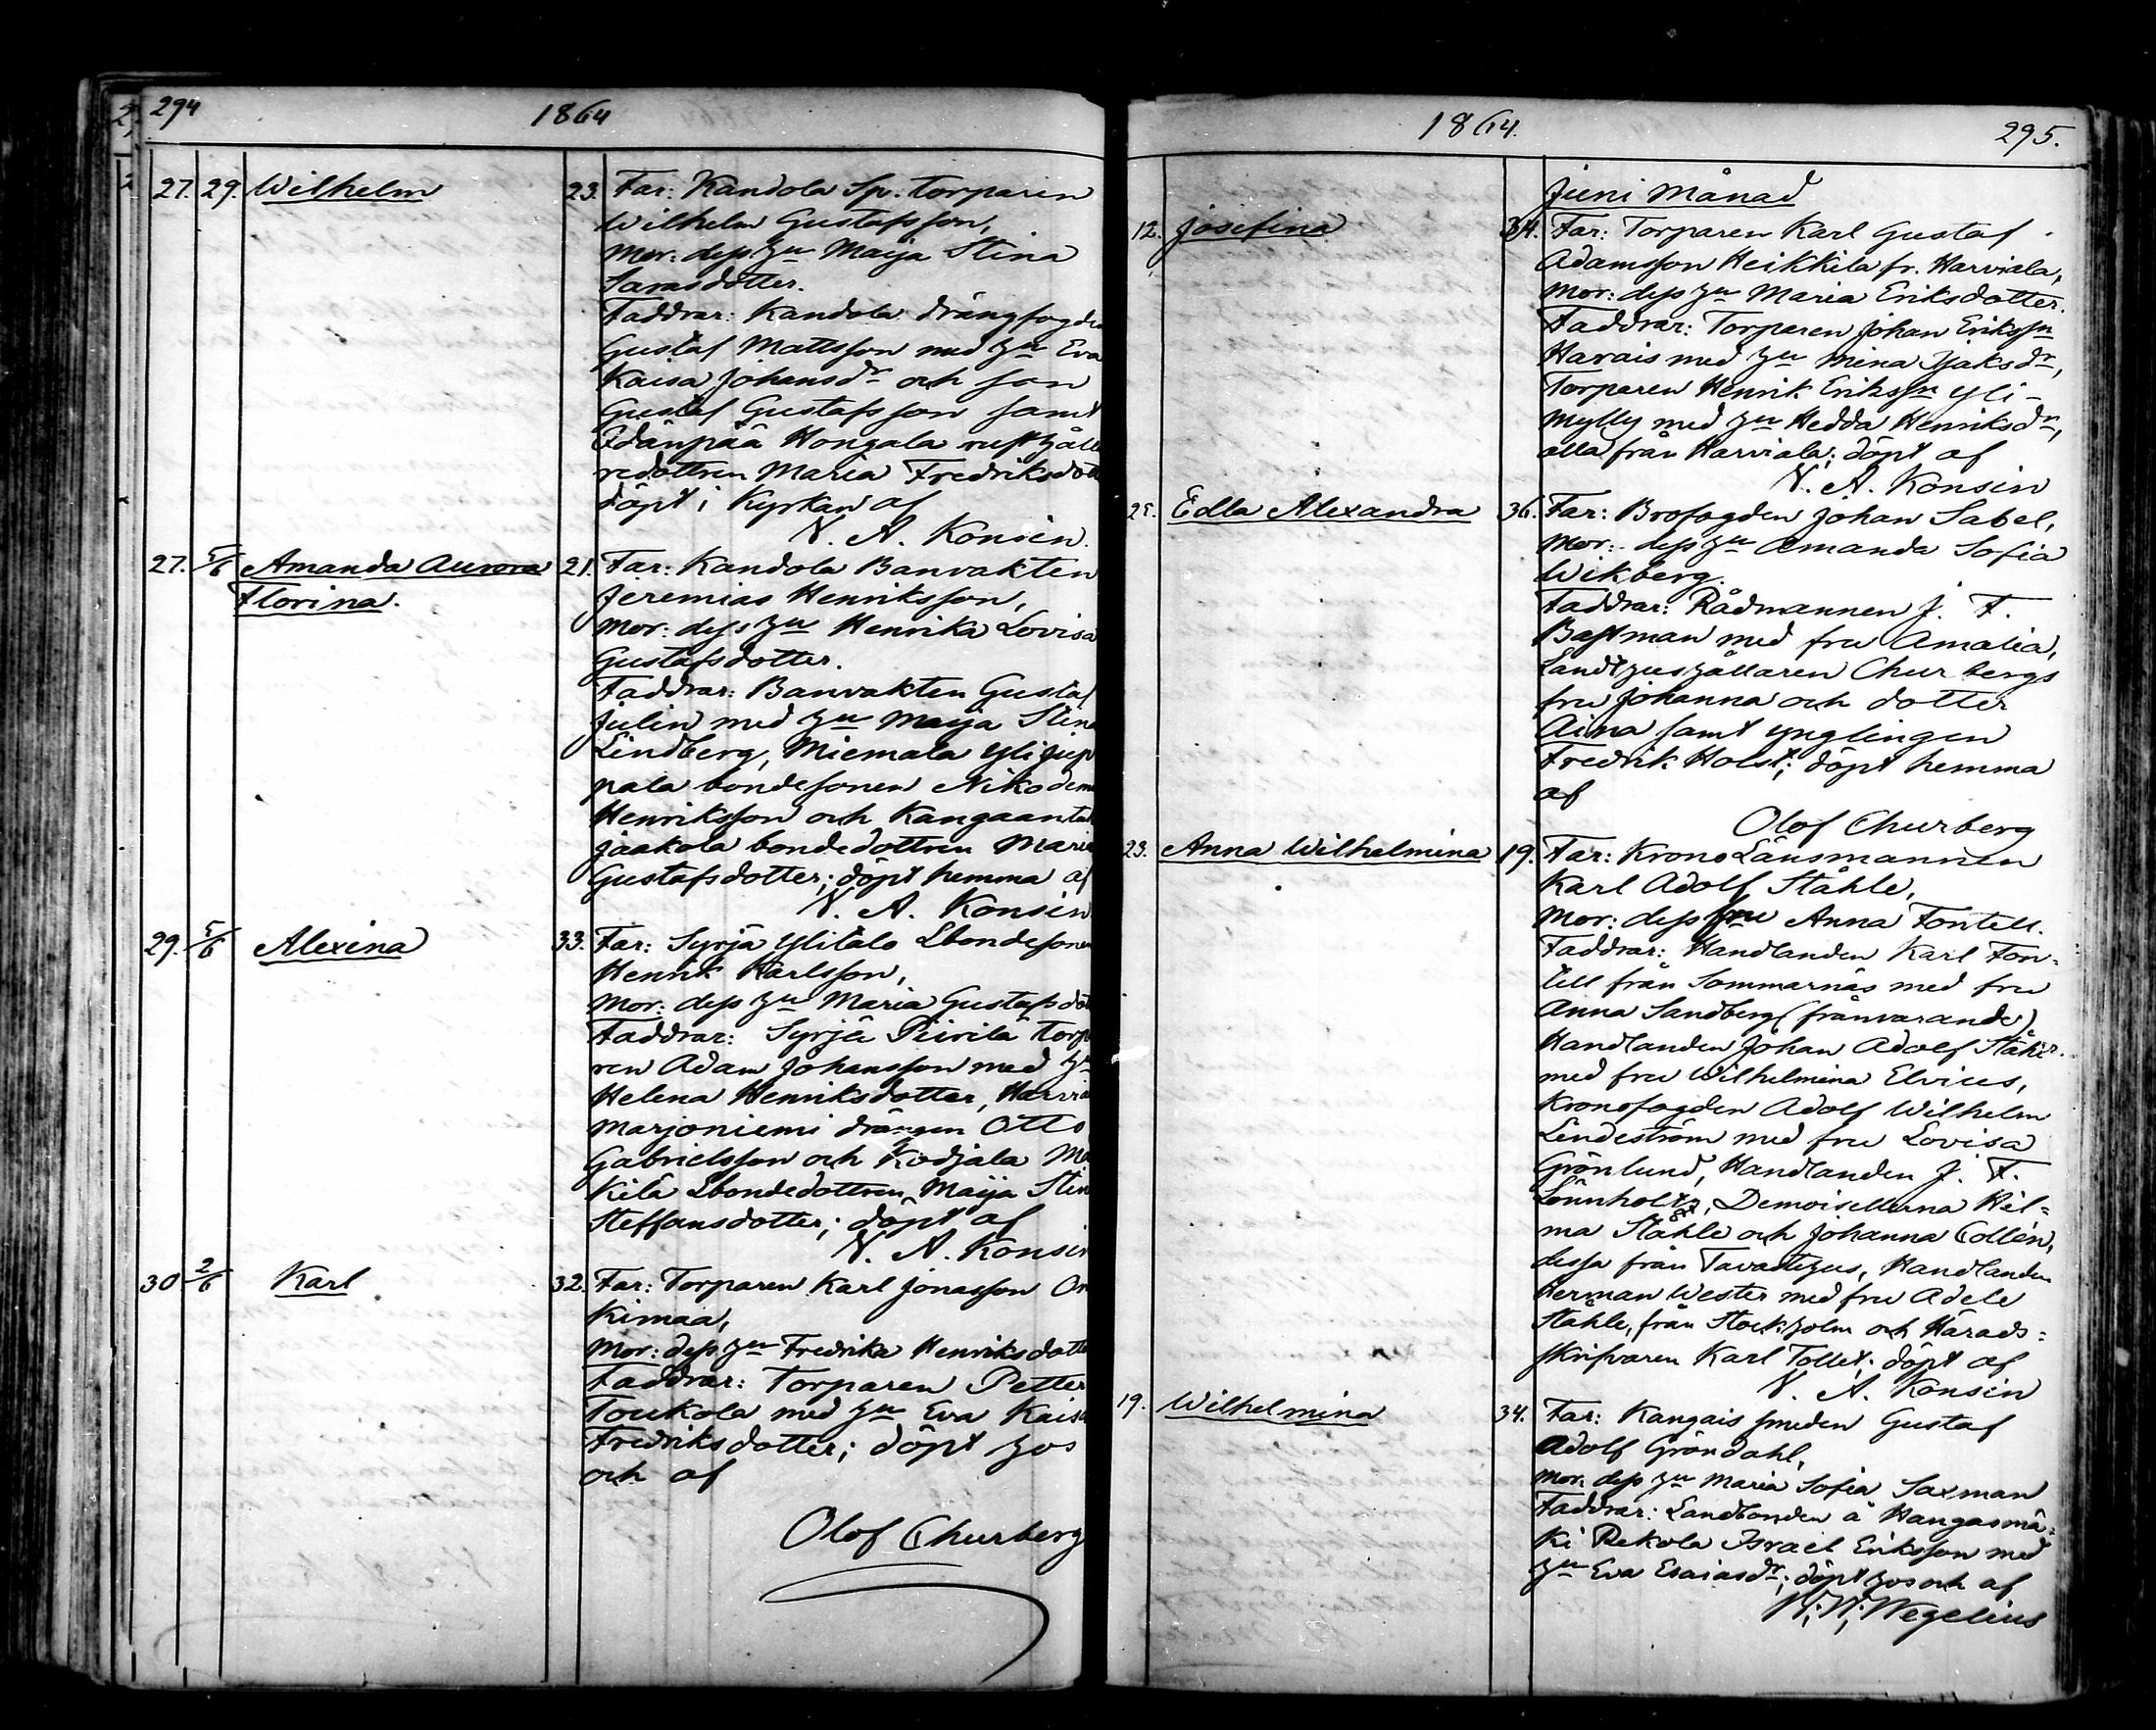 294
1864
27. 29. Wilhelm 23. Far: Kandola Sp. torparen
Wilhelm Gustafsson,
Mor: dess hu Maija Stina
Faddrar: Kandola drängfogden
Gustaf Mattsson med hu Eva
Kaisa Johansdr och son
Gustaf Gustafsson samt
Idänpää Hongala rusthålla
redottren Maria Fredriksdott
döpt i Kyrkan af
N. A. Konsin.
27. 5/6 Amanda Aurora 21. Far: Kandola Banvakten
Florina. Jeremias Henriksson,
Mor: dess hu Henrika Lovisa
Gustafsdotter.
Faddrar: Banvakten Gustaf
Julin med hu Maija Stina
Lindberg, Miemala Ylijup
pala bondesonen Nikodem
Henriksson och Kangaantak
Jaakola bondedottren Maria
Gustafsdotter; döpt hemma af
N. A. Konsin
29. 5/6 Alexina 33. Far: Syrjä Ylitalo Lbondesonen
Henrik Karlsson,
Mor: dess hu Maria Gustafsdot
Faddrar: Syrjä Piirilä torpa
ren Adam Johansson med hu
Helena Henriksdotter, Harvia
Marjoniemi drängen Otto
Gabrielsson och Kodjala Me
kilä Lbondedottren Maija Stin
Steffansdotter; döpt af
N. A. Konsin
30 2/6 Karl 32. Far: Torparen Karl Jonasson On
kimaa,
Mor: dess hu Fredrika Henriksdotte
Faddrar: Torparen Petter
Toukola med hu Eva Kaisa
Fredriksdotter; döpt hos
och af
Olof Churberg
1864.
295.
Juni Månad
12. Josefina 34. Far: Torparen Karl Gustaf
Adamsson Heikkilä fr. Harviala,
Mor: dess hu Maria Eriksdotter.
Faddrar: Torparen Johan Erikssn
Havais med hu Mina Isaksdr,
Torparen Henrik Erikssn Yli-
mylly med hu Hedda Henriksdr,
alla från Harviala; döpt af
N. A. Konsin
Edla Alexandra 36. Far: Brofogden Johan Sabel,
Mor: dess hu Amanda Sofia
Wikberg.
Faddrar: Rådmannen J. F.
Bastman med fru Amalia,
Landthushållaren Churbergs
fru Johanna och dotter
Aina samt ynglingen
Fredrik Holst; döpt hemma
af
Olof Churberg
23. Anna Wilhelmina 19. Far: Krono Länsmannen
Karl Adolf Ståhle,
Mor: dess fru Anna Fontell.
Faddrar: Handlanden Karl Fon-
tell från Sommarnäs med fru
Anna Sandberg (frånvarande)
Handlanden Johan Adolf Ståhle
med fru Wilhelmina Elvius,
Kronofogden Adolf Wilhelm
Lindeström med fru Lovisa
Grönlund, Handlanden J. F.
Lönnholtz, Demoisellerna Wil-
ma Ståhle och Johanna Collén,
dessa från Tavastehus, Handlanden
Herman Wester med fru Adele
Ståhle, från Stockholm och Härads-
skrifvaren Karl Tollet; döpt af
N. A. Konsin
19. Wilhelmina 34. Far: Kangais smeden Gustaf
Adolf Gröndahl,
Mor: dess hu Maria Sofia Saxman
Faddrar: Landbonden å Hangasmä-
ki Rekola Israel Eriksson med
hu Eva Esaiasdr; döpt hos och af
Wegelius